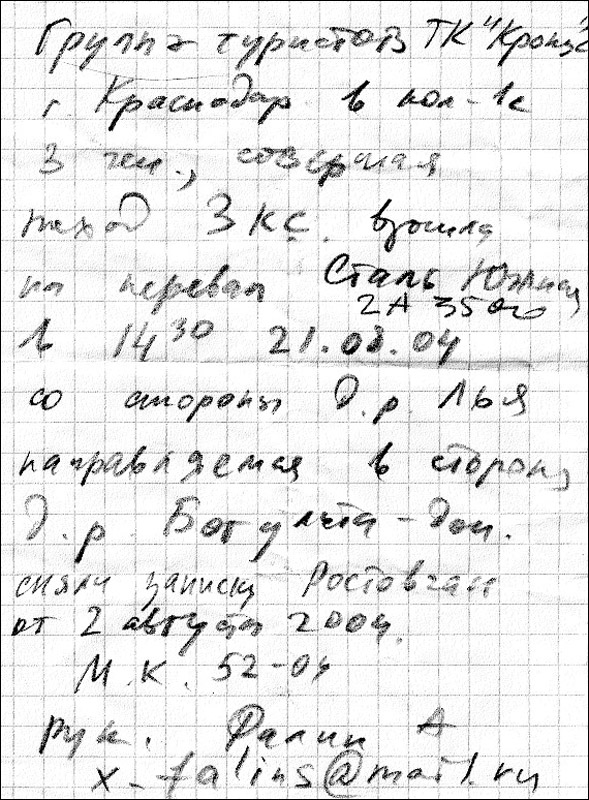 Группа туристов ТК "Кронус"
г. Краснодар в кол-ве
3 чел., совершая
поход 3 кс. взошла
на перевал Сталь Южная
2А 3500
в 14 30 21.08.04
со стороны д.р. Лья
направляемся в сторону
д.р. Богульта-Дон.
сняли записку Ростовчан
от 2 августа 2004.
М.К. 52-04
рук. Фалин А
x-falins@mail.ru